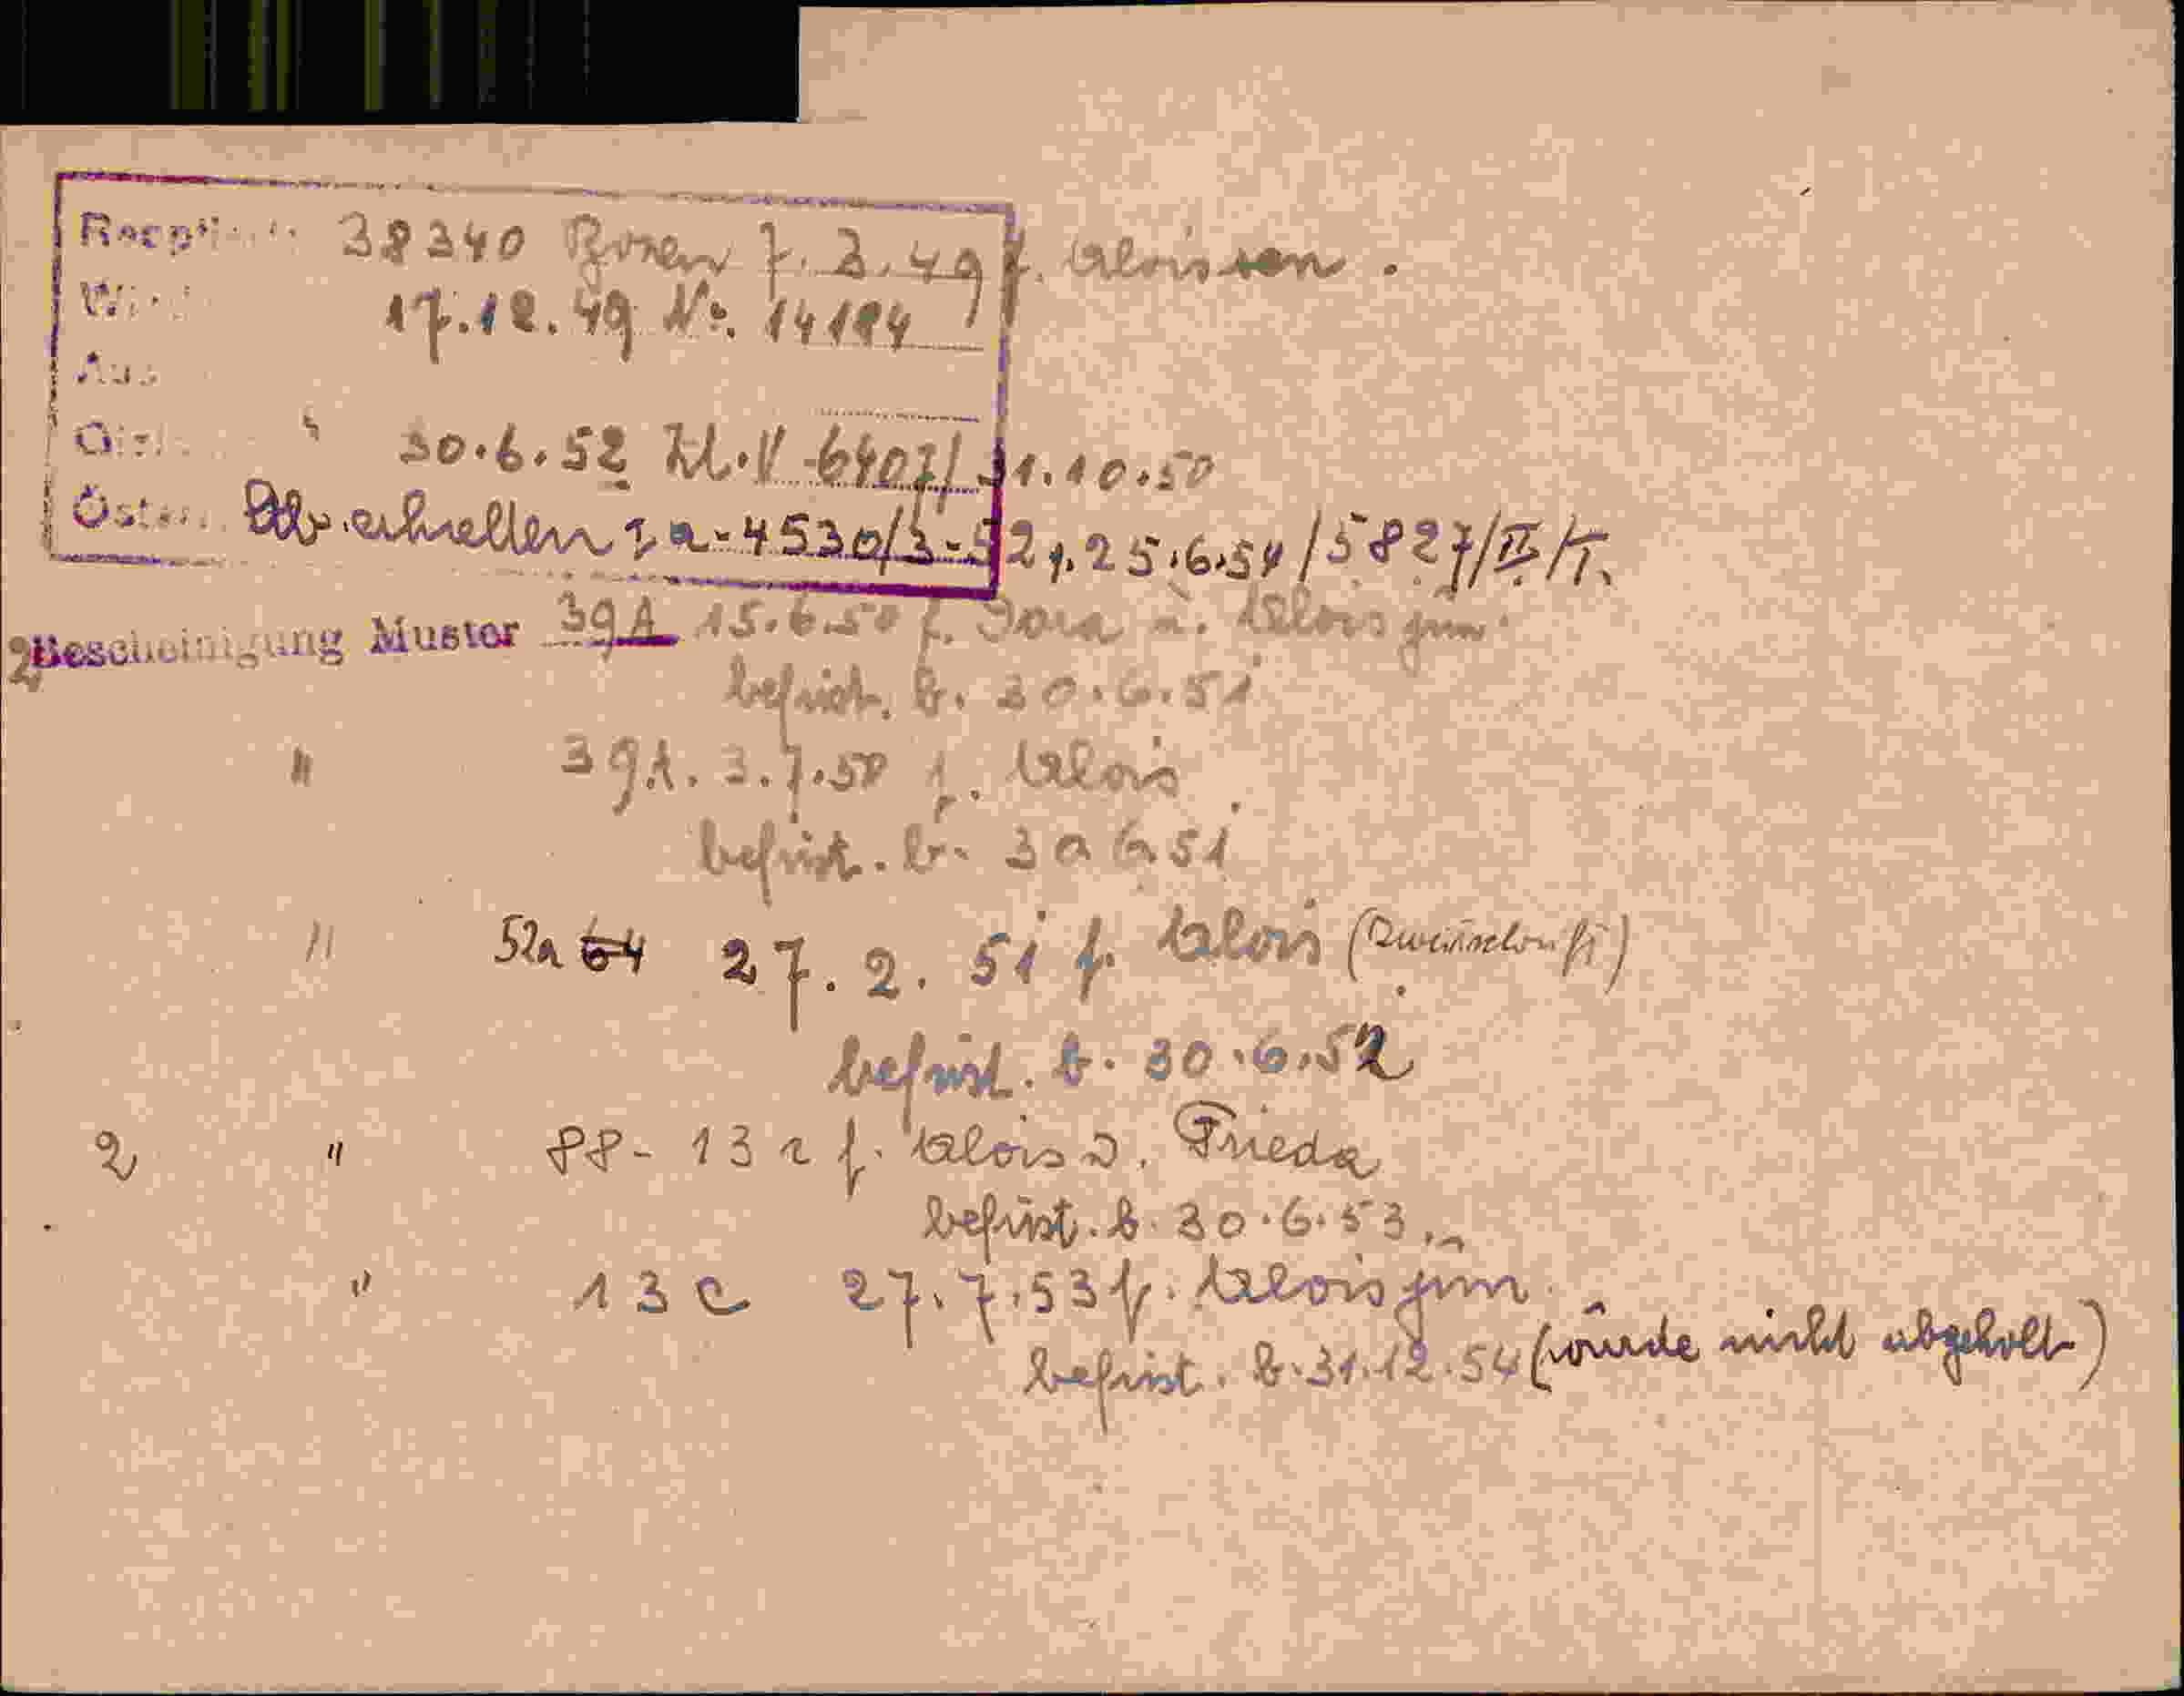 38340 Bozen 7.3.49 f. Alois sen.
17.12.49 Nr. 14194
Aus
30.6.52 Zl. V 6407/31.10.50
Öster. 1a-4530/3-52 v. 25.6.54/5827/II/T.
2 Bescheinigung Muster 39A 15.6.50 f. Dora u. Alois jun.
befrist. b. 30.6.51
" 39A. 3.7.50 f. Alois
befrist. b. 30.6.51
" 52a 64 27.2.51 f. Alois
befrist. b. 30.6.52
2 " 88-13 f. Alois Frieda
befrist. b. 30.6.53
" 13c 27.7.53 f. Alois jun.
befrist. b. 31.12.54 (wurde nicht abgeholt)